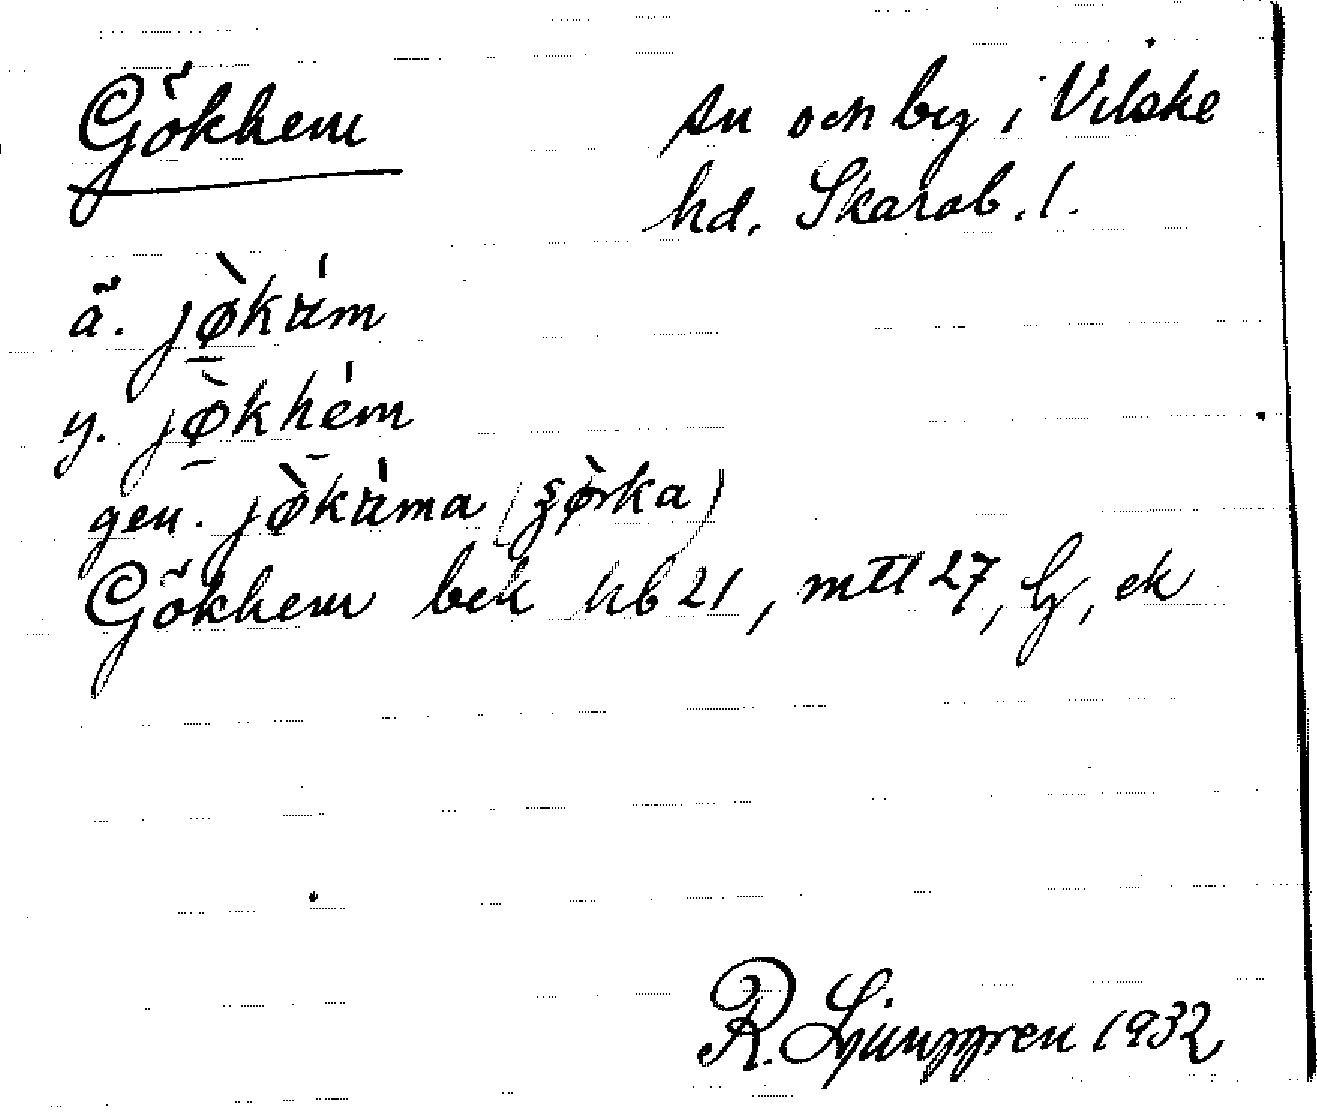 Gökhem
sn och by i Vilske
hd. Skarab. l.
ä. jø̀käm
y. jø̀khém
gen. jø̀käma (
Gökhem bek hb 21, mtl 27, Lj, ek
R. Ljunggren 1932